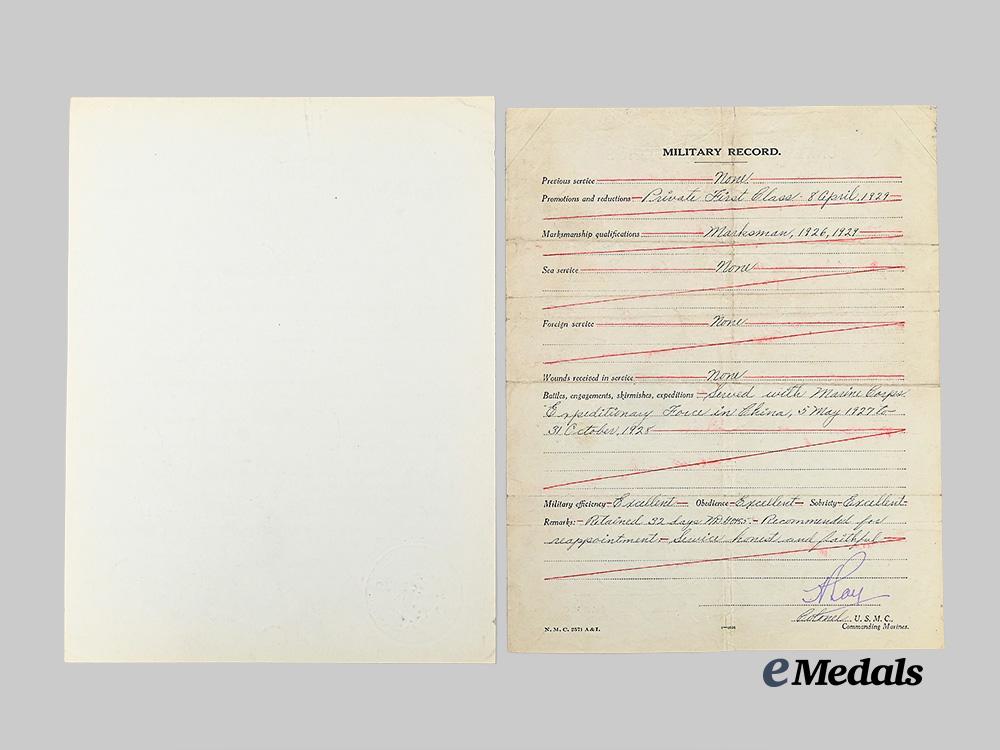 MILITARY RECORD.
Previous service None
Promotions and reductions Private First Class - 8 April, 1929
Marksmanship qualifications Marksman, 1926, 1929
Sea service None
Foreign service None
Wounds received in service None
Battles, engagements, skirmishes, expeditions Served with Marine Corps
Expeditionary Force in China, 5 May 1927 to
31 October, 1928
Military efficiency Excellent Obedience Excellent Sobriety Excellent
Remarks: Retained 32 days - Recommended for
reappointment - Service honest and faithful
Colonel U. S. M. C.,
N. M. C. 257i A & I. Commanding Marines.
eMedals